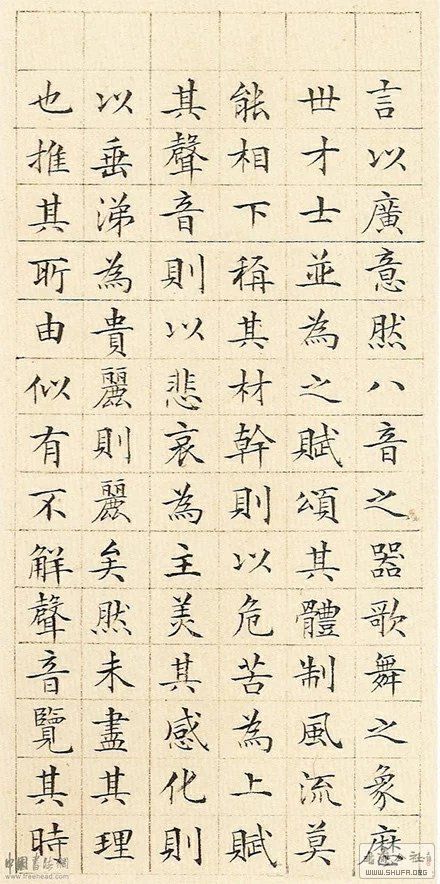 言以廣意然八音之器歌舞之象歷
世才士並為之賦頌其體制風流莫
能相下稱其材幹則以危苦為上賦
其聲音則以悲哀為主美其感化則
以垂涕為貴麗則麗矣然未盡其理
也推其所由似有不解聲音覽其時
中國書法網
www.freehead.com
WWW.SHUFA.ORG